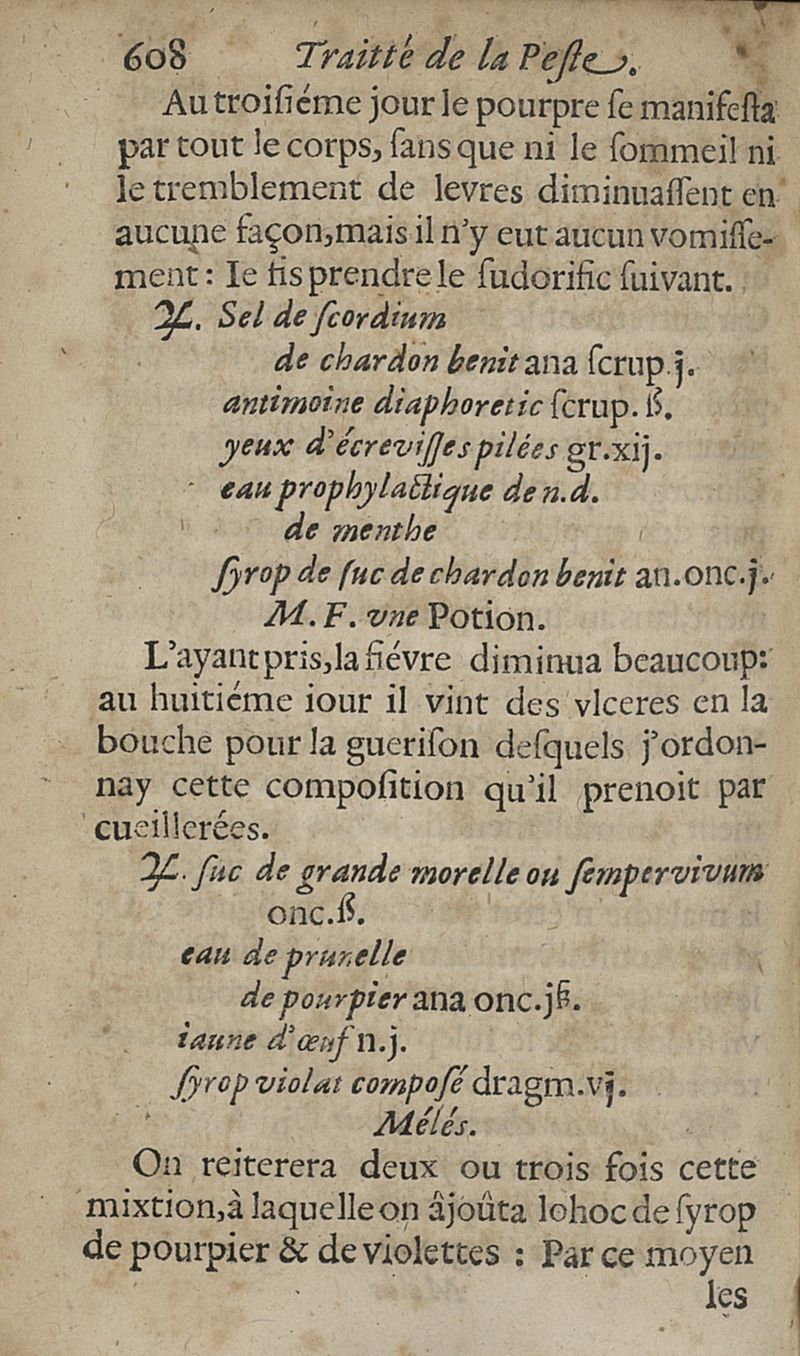 608 Traitté de la Peste.
Au troiſiéme jour le pourpre ſe manifeſta
par tout le corps, ſans que ni le ſommeil ni
le tremblement de levres diminuaſſent en
aucune façon, mais il n'y eut aucun vomiſſe-
ment : Ie fis prendre le ſudorific ſuivant.
℞. Sel de ſcordium
de chardon benit ana ſcrup.j.
antimoine diaphoretic ſcrup. ß.
yeux d'écreviſſes pilées gr.xij.
eau prophylactique de n.d.
de menthe
ſyrop de ſuc de chardon benit an.onc.j.
M. F. vne Potion.
L'ayant pris, la fiévre diminua beaucoup:
au huitiéme iour il vint des vlceres en la
bouche pour la gueriſon deſquels j'ordon-
nay cette compoſition qu'il prenoit par
cueillerées.
℞. ſuc de grande morelle ou ſempervivum
onc.ß.
eau de prunelle
de pourpier ana onc.jß.
iaune d'œuf n.j.
ſyrop violat compoſé dragm.vj.
Mélés.
On reiterera deux ou trois fois cette
mixtion, à laquelle on âjoûta lohoc de ſyrop
de pourpier & de violettes : Par ce moyen
les